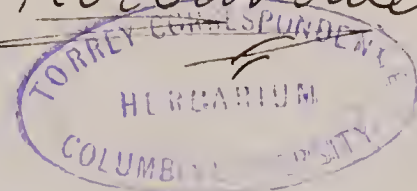 TORREY CORRESPONDENCE
HERBARIUM
COLUMBIA UNIVERSITY